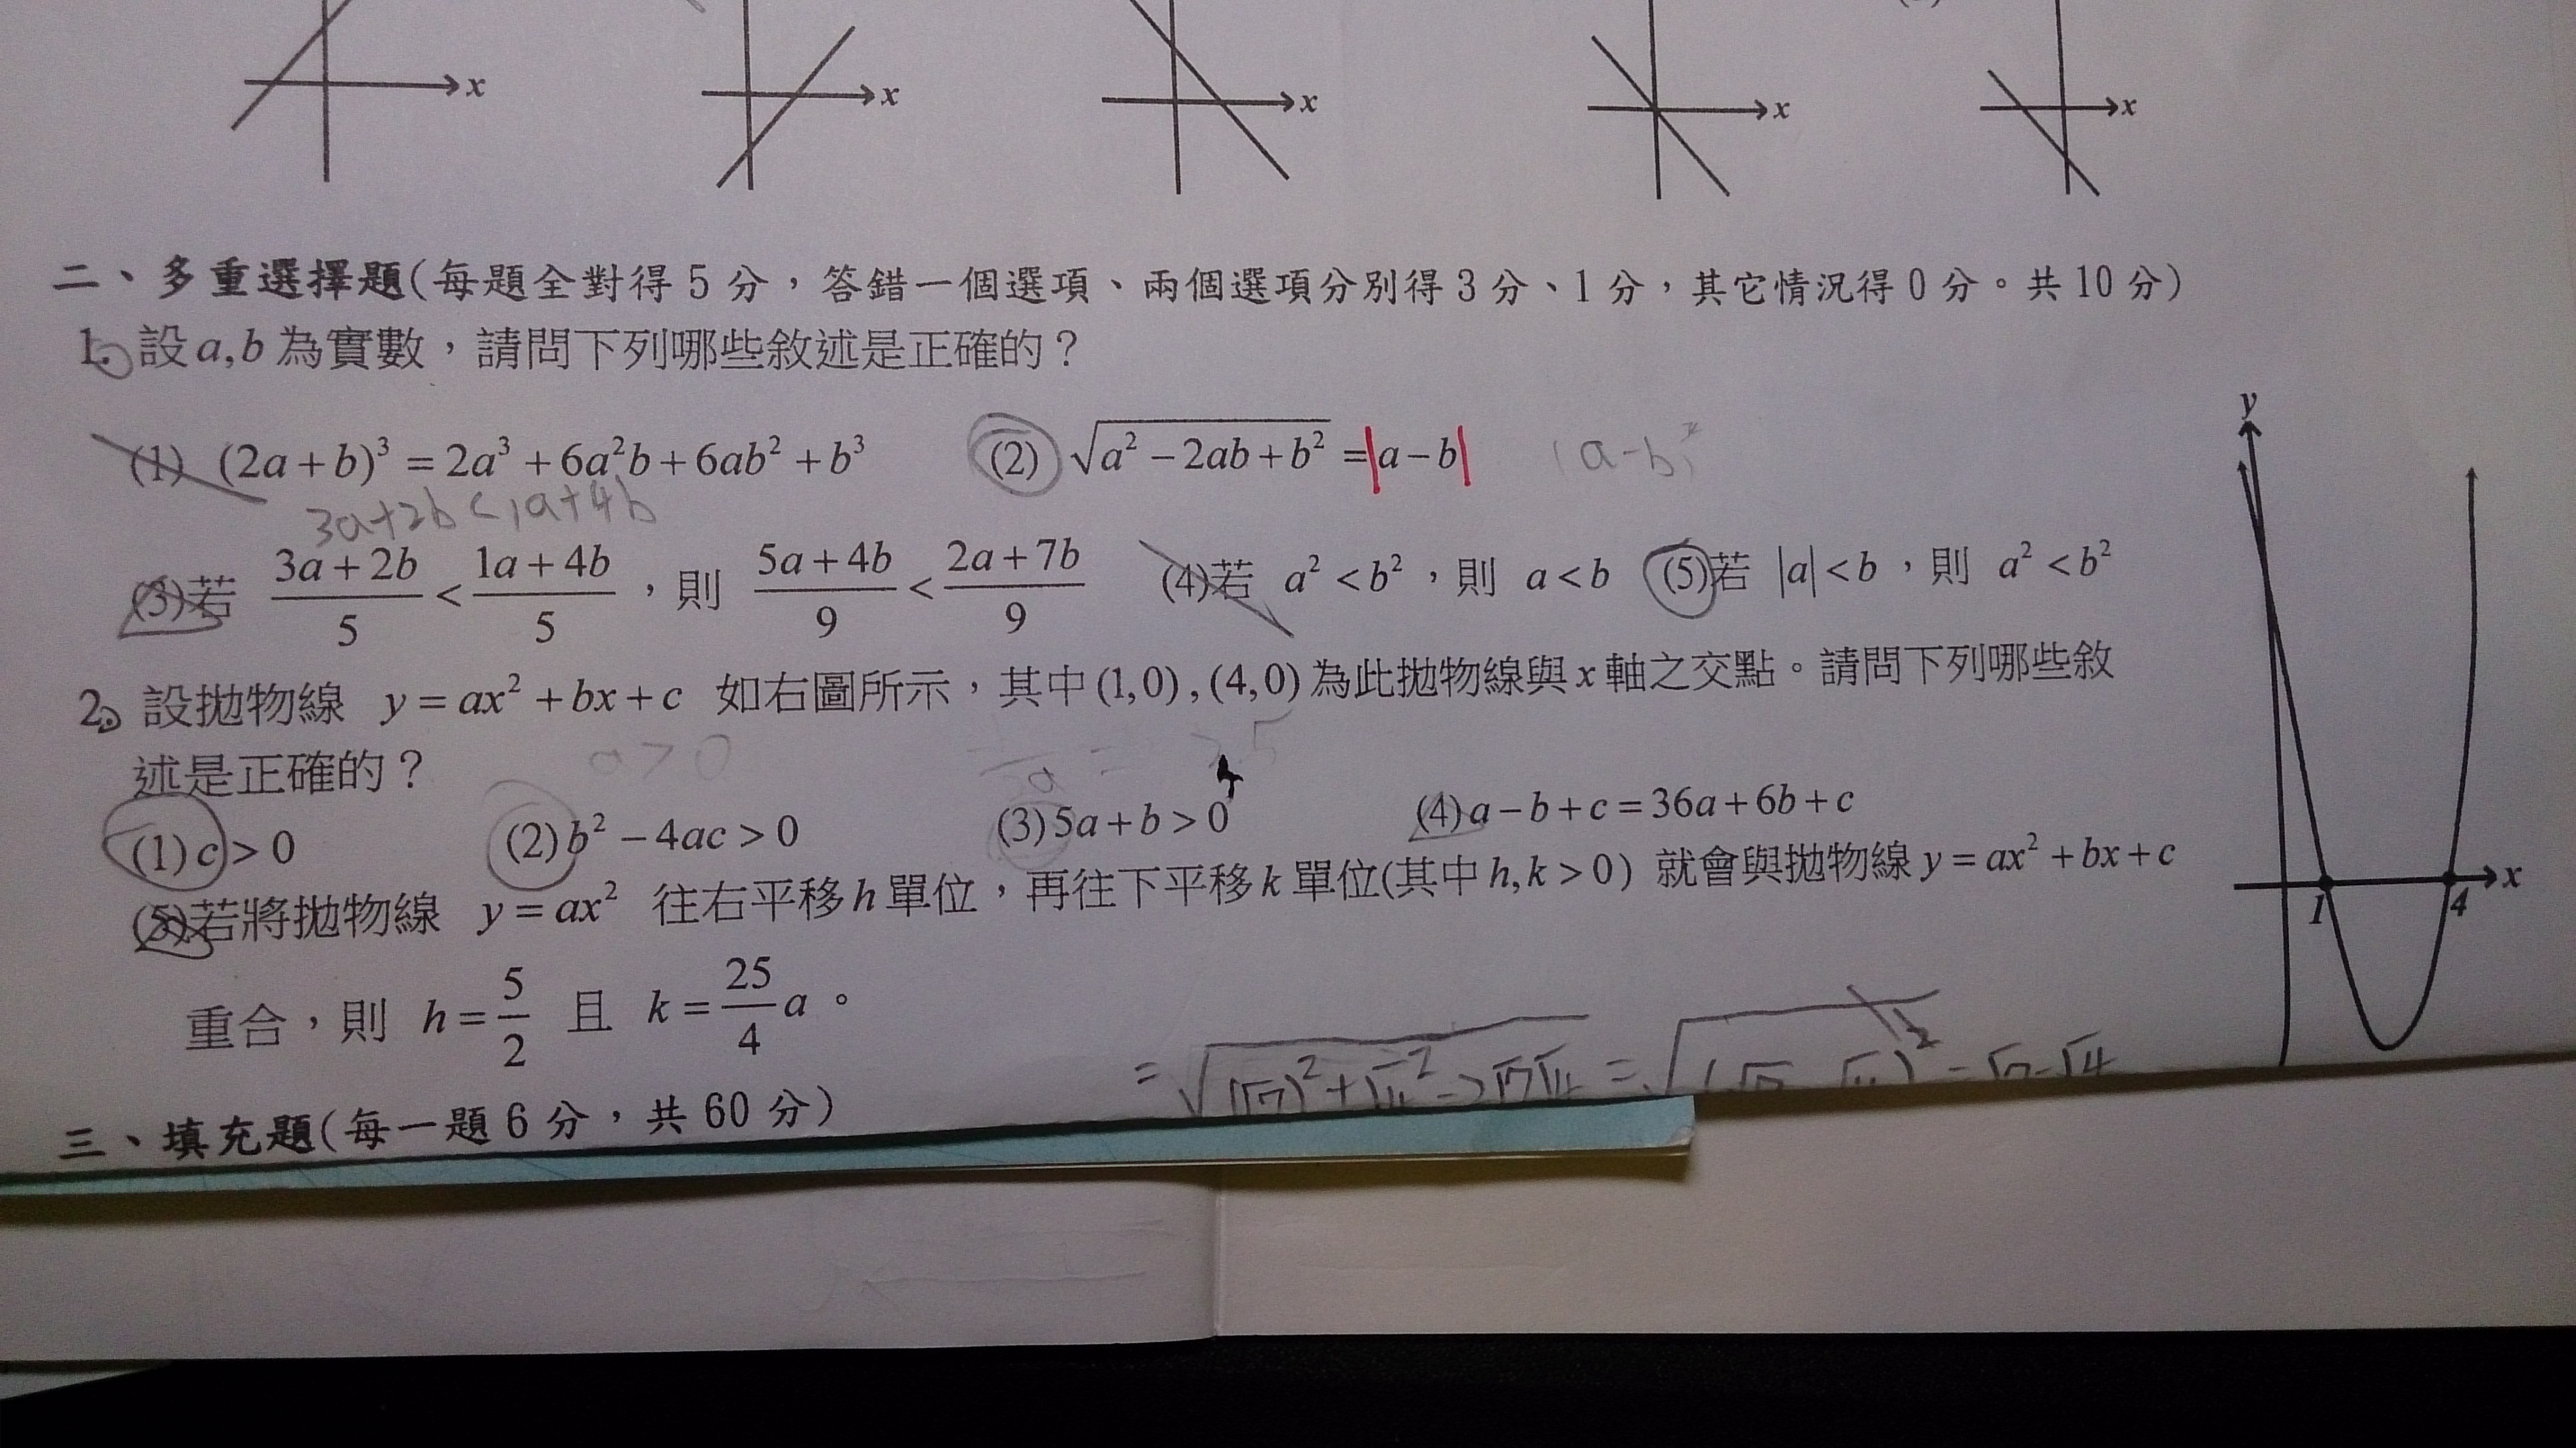 x x x x x
二、多重選擇題(每題全對得 5 分,答錯一個選項、兩個選項分別得 3 分、1 分,其它情況得 0 分。共 10 分)
1. 設 a,b 為實數,請問下列哪些敘述是正確的?
(1) (2a+b)³ = 2a³ + 6a²b + 6ab² + b³ (2) √(a² − 2ab + b²) = |a − b| (a-b)²
3a+2b < 1a+4b
(3)若 (3a+2b)/5 < (1a+4b)/5 ,則 (5a+4b)/9 < (2a+7b)/9 (4)若 a² < b² ,則 a < b (5)若 |a| < b ,則 a² < b²
2. 設拋物線 y = ax² + bx + c 如右圖所示,其中 (1,0) , (4,0) 為此拋物線與 x 軸之交點。請問下列哪些敘
述是正確的? a>0
(1) c > 0 (2) b² − 4ac > 0 (3) 5a + b > 0 (4) a − b + c = 36a + 6b + c
(5)若將拋物線 y = ax² 往右平移 h 單位,再往下平移 k 單位(其中 h, k > 0) 就會與拋物線 y = ax² + bx + c
重合,則 h = 5/2 且 k = 25/4 a 。
y
x
1 4
三、填充題(每一題 6 分,共 60 分)